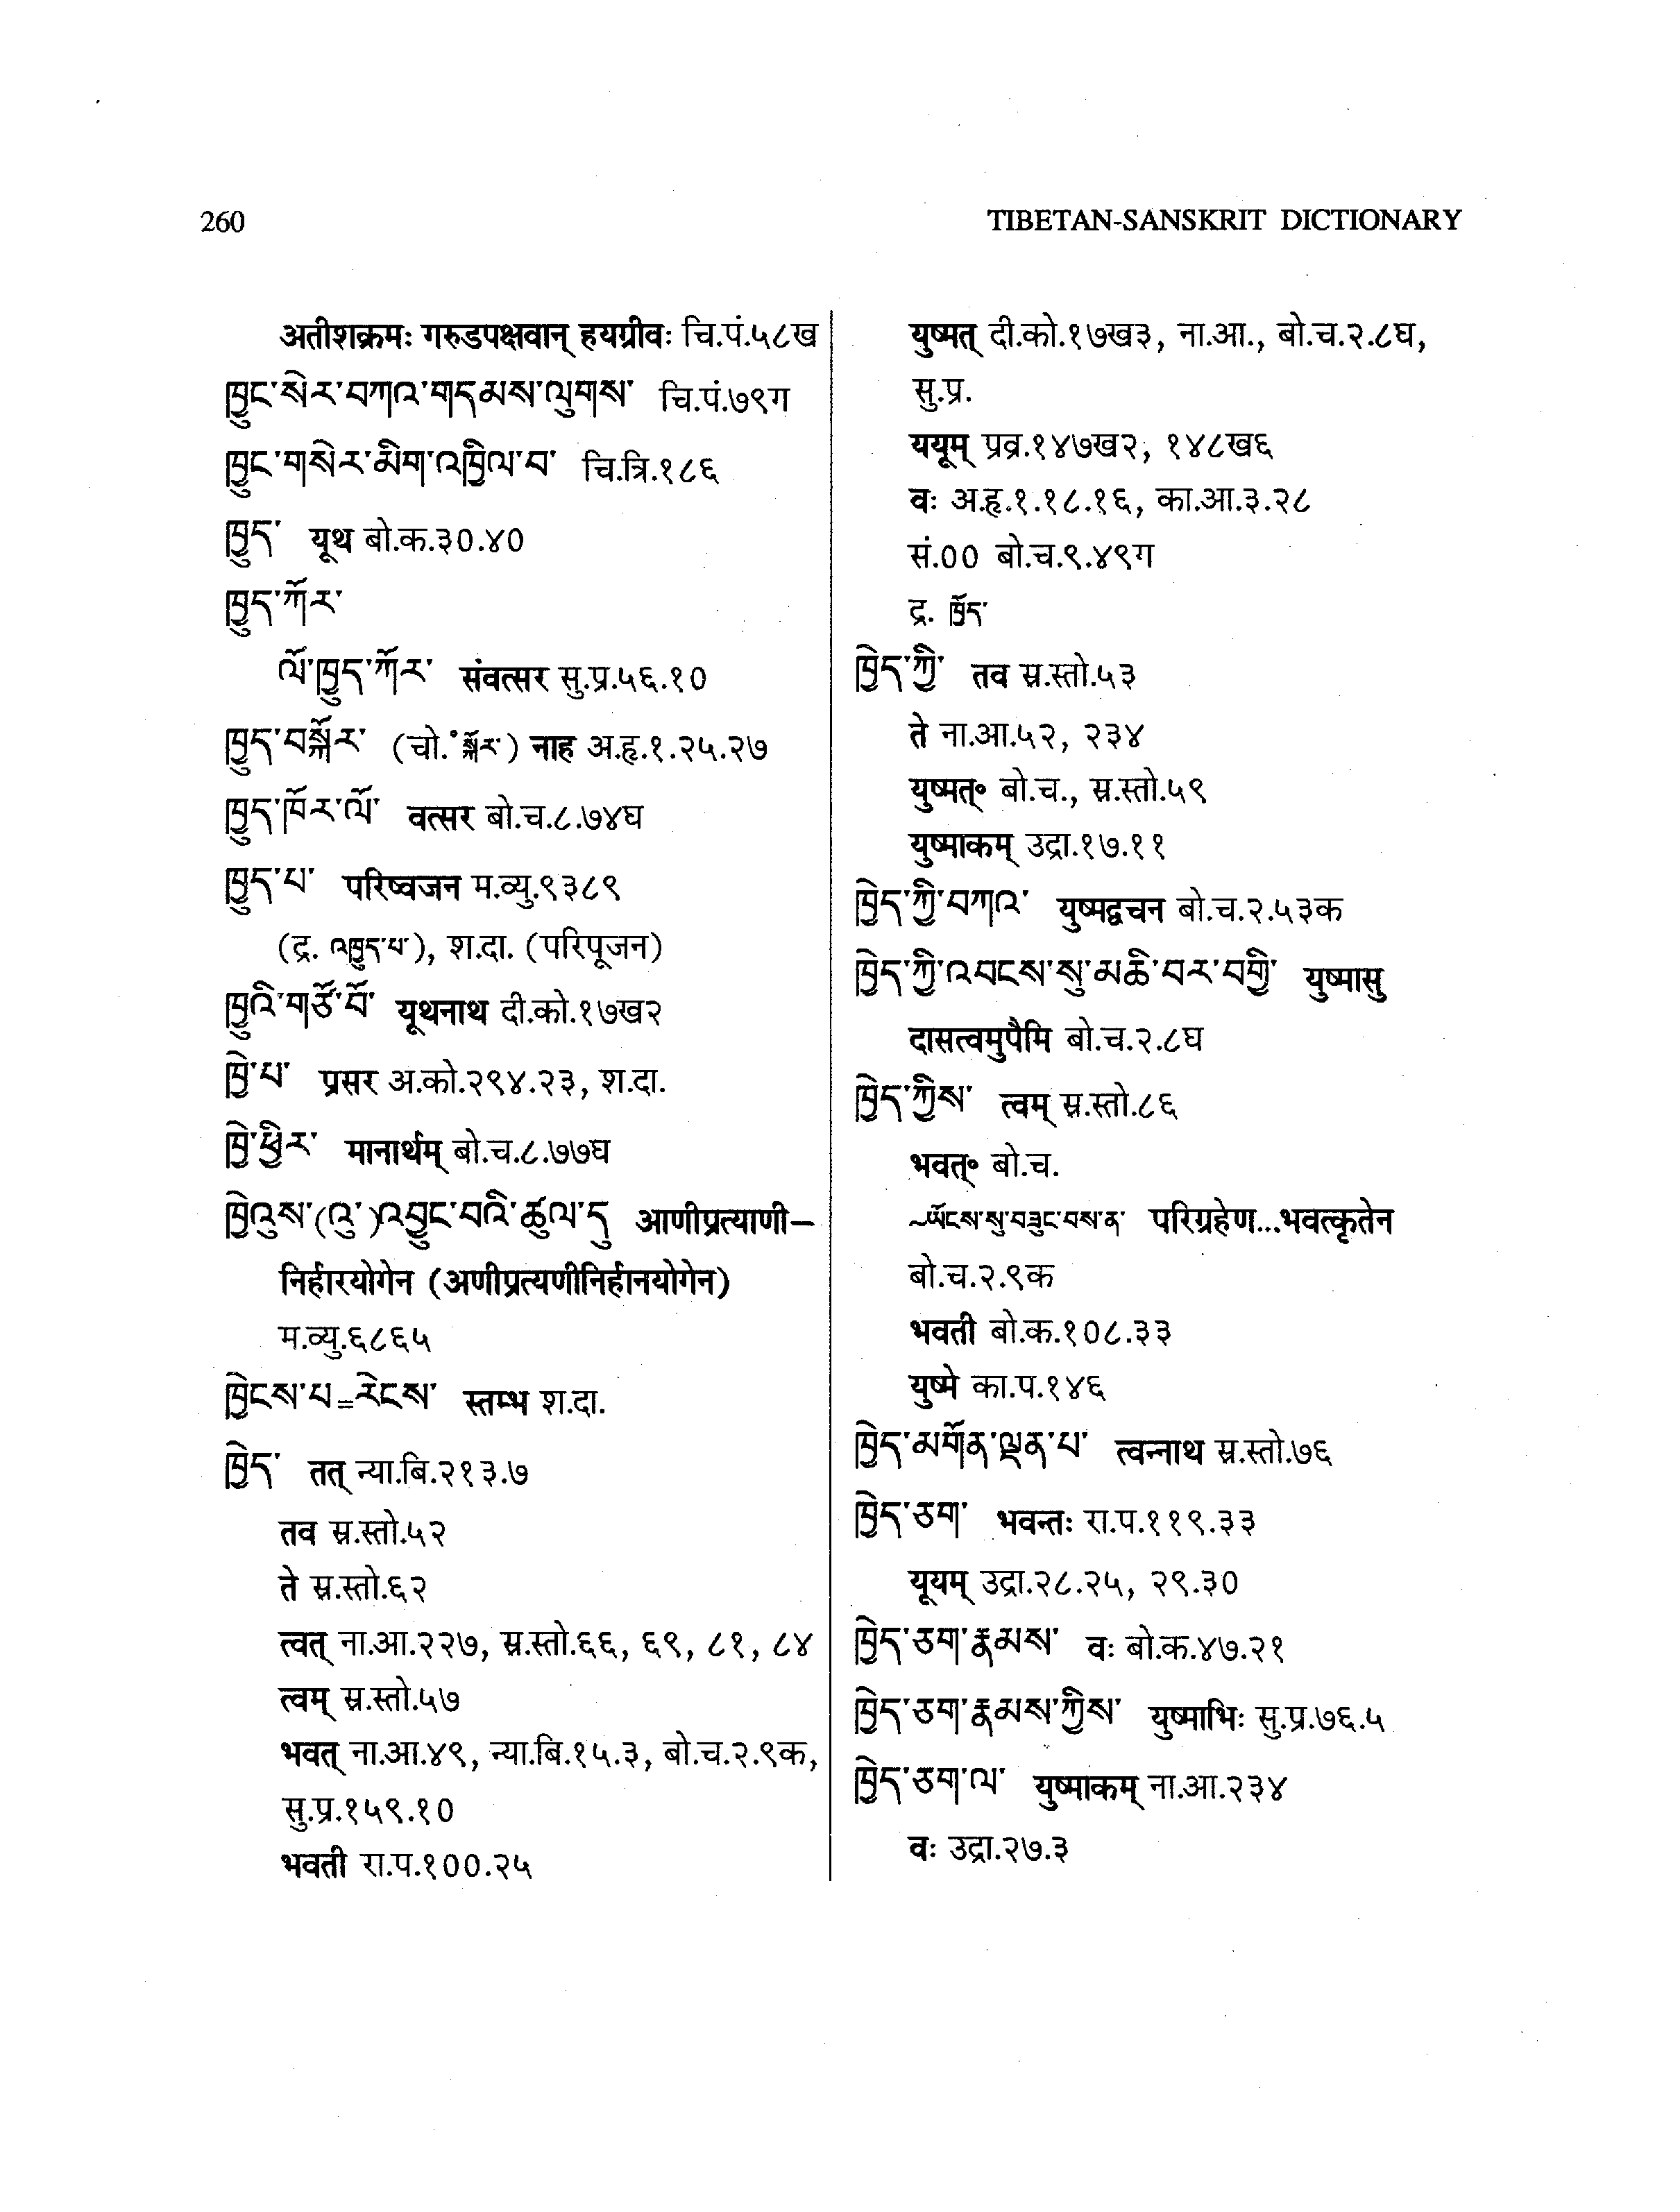 260
TIBETAN-SANSKRIT DICTIONARY
अतीशक्रमः गरुडपक्षवान् हयग्रीवः चि.पं.५८ख
ཁྱུང་སེར་བཀའ་གདམས་ལུགས་ चि.पं.७९ग
ཁྱུང་གསེར་མིག་འཁྱིལ་བ་ चि.त्रि.१८६
ཁྱུད་ यूथ बो.क.३०.४०
ཁྱུད་ཀོར་
ལོ་ཁྱུད་ཀོར་ संवत्सर सु.प्र.५६.१०
ཁྱུད་བསྐོར་ (चो.॰སྐོར་) नाह अ.हृ.१.२५.२७
ཁྱུད་ཁོར་ལོ་ वत्सर बो.च.८.७४घ
ཁྱུད་པ་ परिष्वजन म.व्यु.९३८९
(द्र. འཁྱུད་པ་), श.दा. (परिपूजन)
ཁྱུའི་གཙོ་བོ་ यूथनाथ दी.को.१७ख२
ཁྱེ་པ་ प्रसर अ.को.२९४.२३, श.दा.
ཁྱེ་ཕྱིར་ मानार्थम् बो.च.८.७७घ
ཁྱེའུས་(འུ་)འབྱུང་བའི་ཚུལ་དུ आणीप्रत्याणी–
निर्हारयोगेन (अणीप्रत्यणीनिर्हानयोगेन)
म.व्यु.६८६५
ཁྱེངས་པ=རེངས་ स्तम्भ श.दा.
ཁྱེད་ तत् न्या.बि.२१३.७
तव स्र.स्तो.५२
ते स्र.स्तो.६२
त्वत् ना.आ.२२७, स्र.स्तो.६६, ६९, ८१, ८४
त्वम् स्र.स्तो.५७
भवत् ना.आ.४९, न्या.बि.१५.३, बो.च.२.९क,
सु.प्र.१५९.१०
भवती रा.प.१००.२५
युष्मत् दी.को.१७ख३, ना.आ., बो.च.२.८घ,
सु.प्र.
ययूम् प्रव्र.१४७ख२, १४८ख६
वः अ.हृ.१.१८.१६, का.आ.३.२८
सं.०० बो.च.९.४९ग
द्र. ཁྱོད་
ཁྱེད་ཀྱི་ तव स्र.स्तो.५३
ते ना.आ.५२, २३४
युष्मत्॰ बो.च., स्र.स्तो.५९
युष्माकम् उद्रा.१७.११
ཁྱེད་ཀྱི་བཀའ་ युष्मद्वचन बो.च.२.५३क
ཁྱེད་ཀྱི་འབངས་སུ་མཆི་བར་བགྱི་ युष्मासु
दासत्वमुपैमि बो.च.२.८घ
ཁྱེད་ཀྱིས་ त्वम् स्र.स्तो.८६
भवत्॰ बो.च.
~ཡོངས་སུ་བཟུང་བས་ན་ परिग्रहेण...भवत्कृतेन
बो.च.२.९क
भवती बो.क.१०८.३३
युष्मे का.प.१४६
ཁྱེད་མགོན་ལྡན་པ་ त्वन्नाथ स्र.स्तो.७६
ཁྱེད་ཅག་ भवन्तः रा.प.११९.३३
यूयम् उद्रा.२८.२५, २९.३०
ཁྱེད་ཅག་རྣམས་ वः बो.क.४७.२१
ཁྱེད་ཅག་རྣམས་ཀྱིས་ युष्माभिः सु.प्र.७६.५
ཁྱེད་ཅག་ལ་ युष्माकम् ना.आ.२३४
वः उद्रा.२७.३